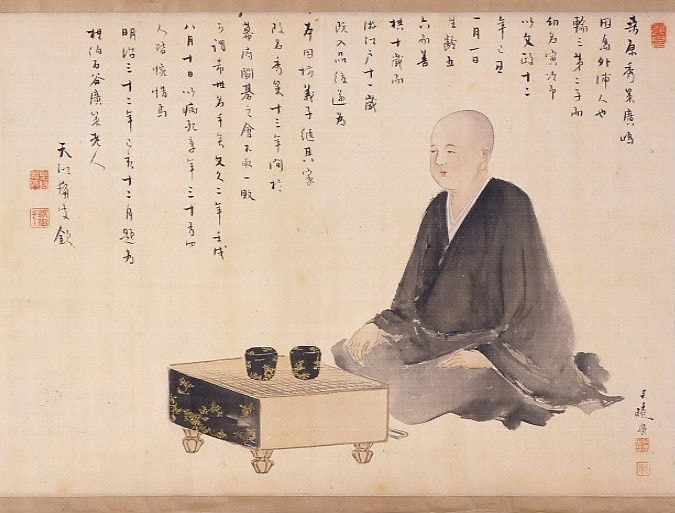 桑原秀策廣嶋
因島外浦人也
輪三第二子而
幼名寅次郎
以文政十二
年己丑
一月一日
生齢五
六而善
棋十歳而
游江戸十一歳
既入品後遂為
本因坊義子継其家
改名秀策十三年間於
幕府開碁之會不取一敗
可謂希世名手矣文久二年壬戌
八月十日以病歿享年三十有四
人皆惜焉
明治三十二年己亥十二月題為
棋伯石谷廣策老人
天江